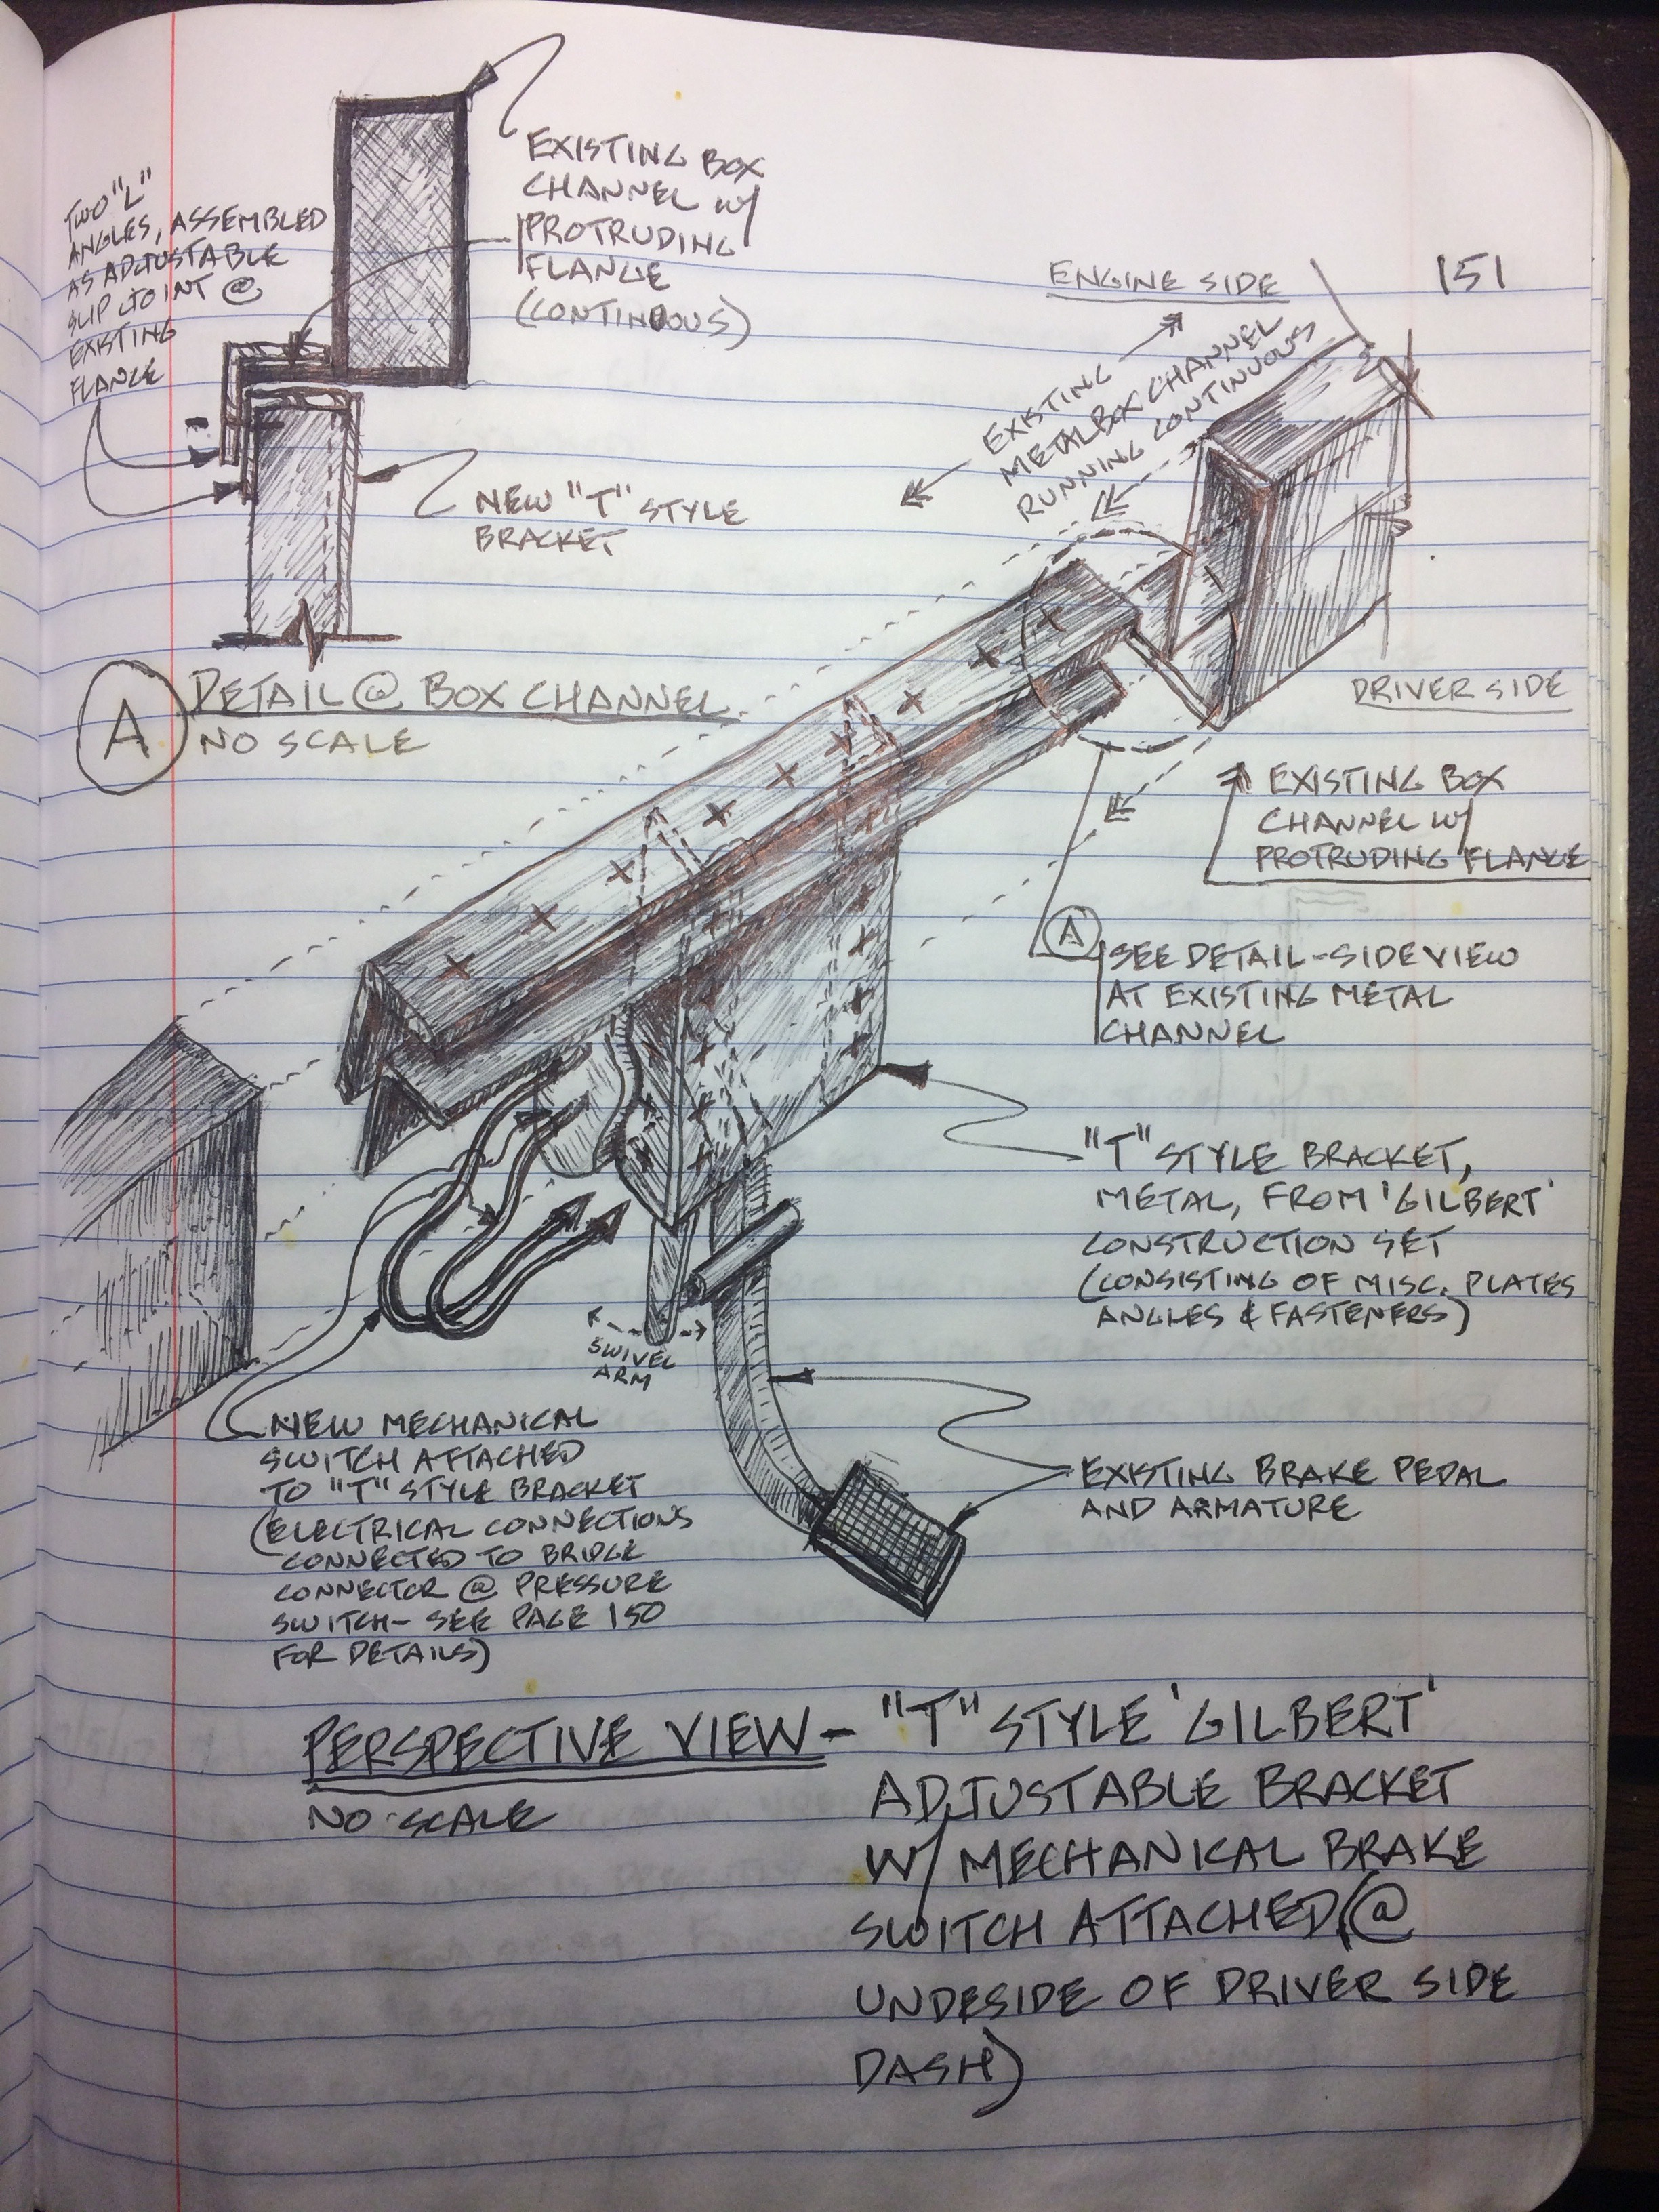 151
EXISTING BOX
CHANNEL W/
PROTRUDING
FLANGE
(CONTINUOUS)
TWO "L"
ANGLES, ASSEMBLED
AS ADJUSTABLE
SLIP JOINT @
EXISTING
FLANGE
NEW "T" STYLE
BRACKET
A
DETAIL @ BOX CHANNEL
NO SCALE
ENGINE SIDE
EXISTING
METAL BOX CHANNEL
RUNNING CONTINUOUS
DRIVER SIDE
EXISTING BOX
CHANNEL W/
PROTRUDING FLANGE
A
SEE DETAIL-SIDE VIEW
AT EXISTING METAL
CHANNEL
"T" STYLE BRACKET,
METAL, FROM 'GILBERT'
CONSTRUCTION SET
(CONSISTING OF MISC. PLATES
ANGLES & FASTENERS)
SWIVEL
ARM
NEW MECHANICAL
SWITCH ATTACHED
TO "T" STYLE BRACKET
(ELECTRICAL CONNECTIONS
CONNECTED TO BRIDGE
CONNECTOR @ PRESSURE
SWITCH- SEE PAGE 150
FOR DETAILS)
EXISTING BRAKE PEDAL
AND ARMATURE
PERSPECTIVE VIEW -
NO SCALE
"T" STYLE 'GILBERT'
ADJUSTABLE BRACKET
W/ MECHANICAL BRAKE
SWITCH ATTACHED @
UNDESIDE OF DRIVER SIDE
DASH)